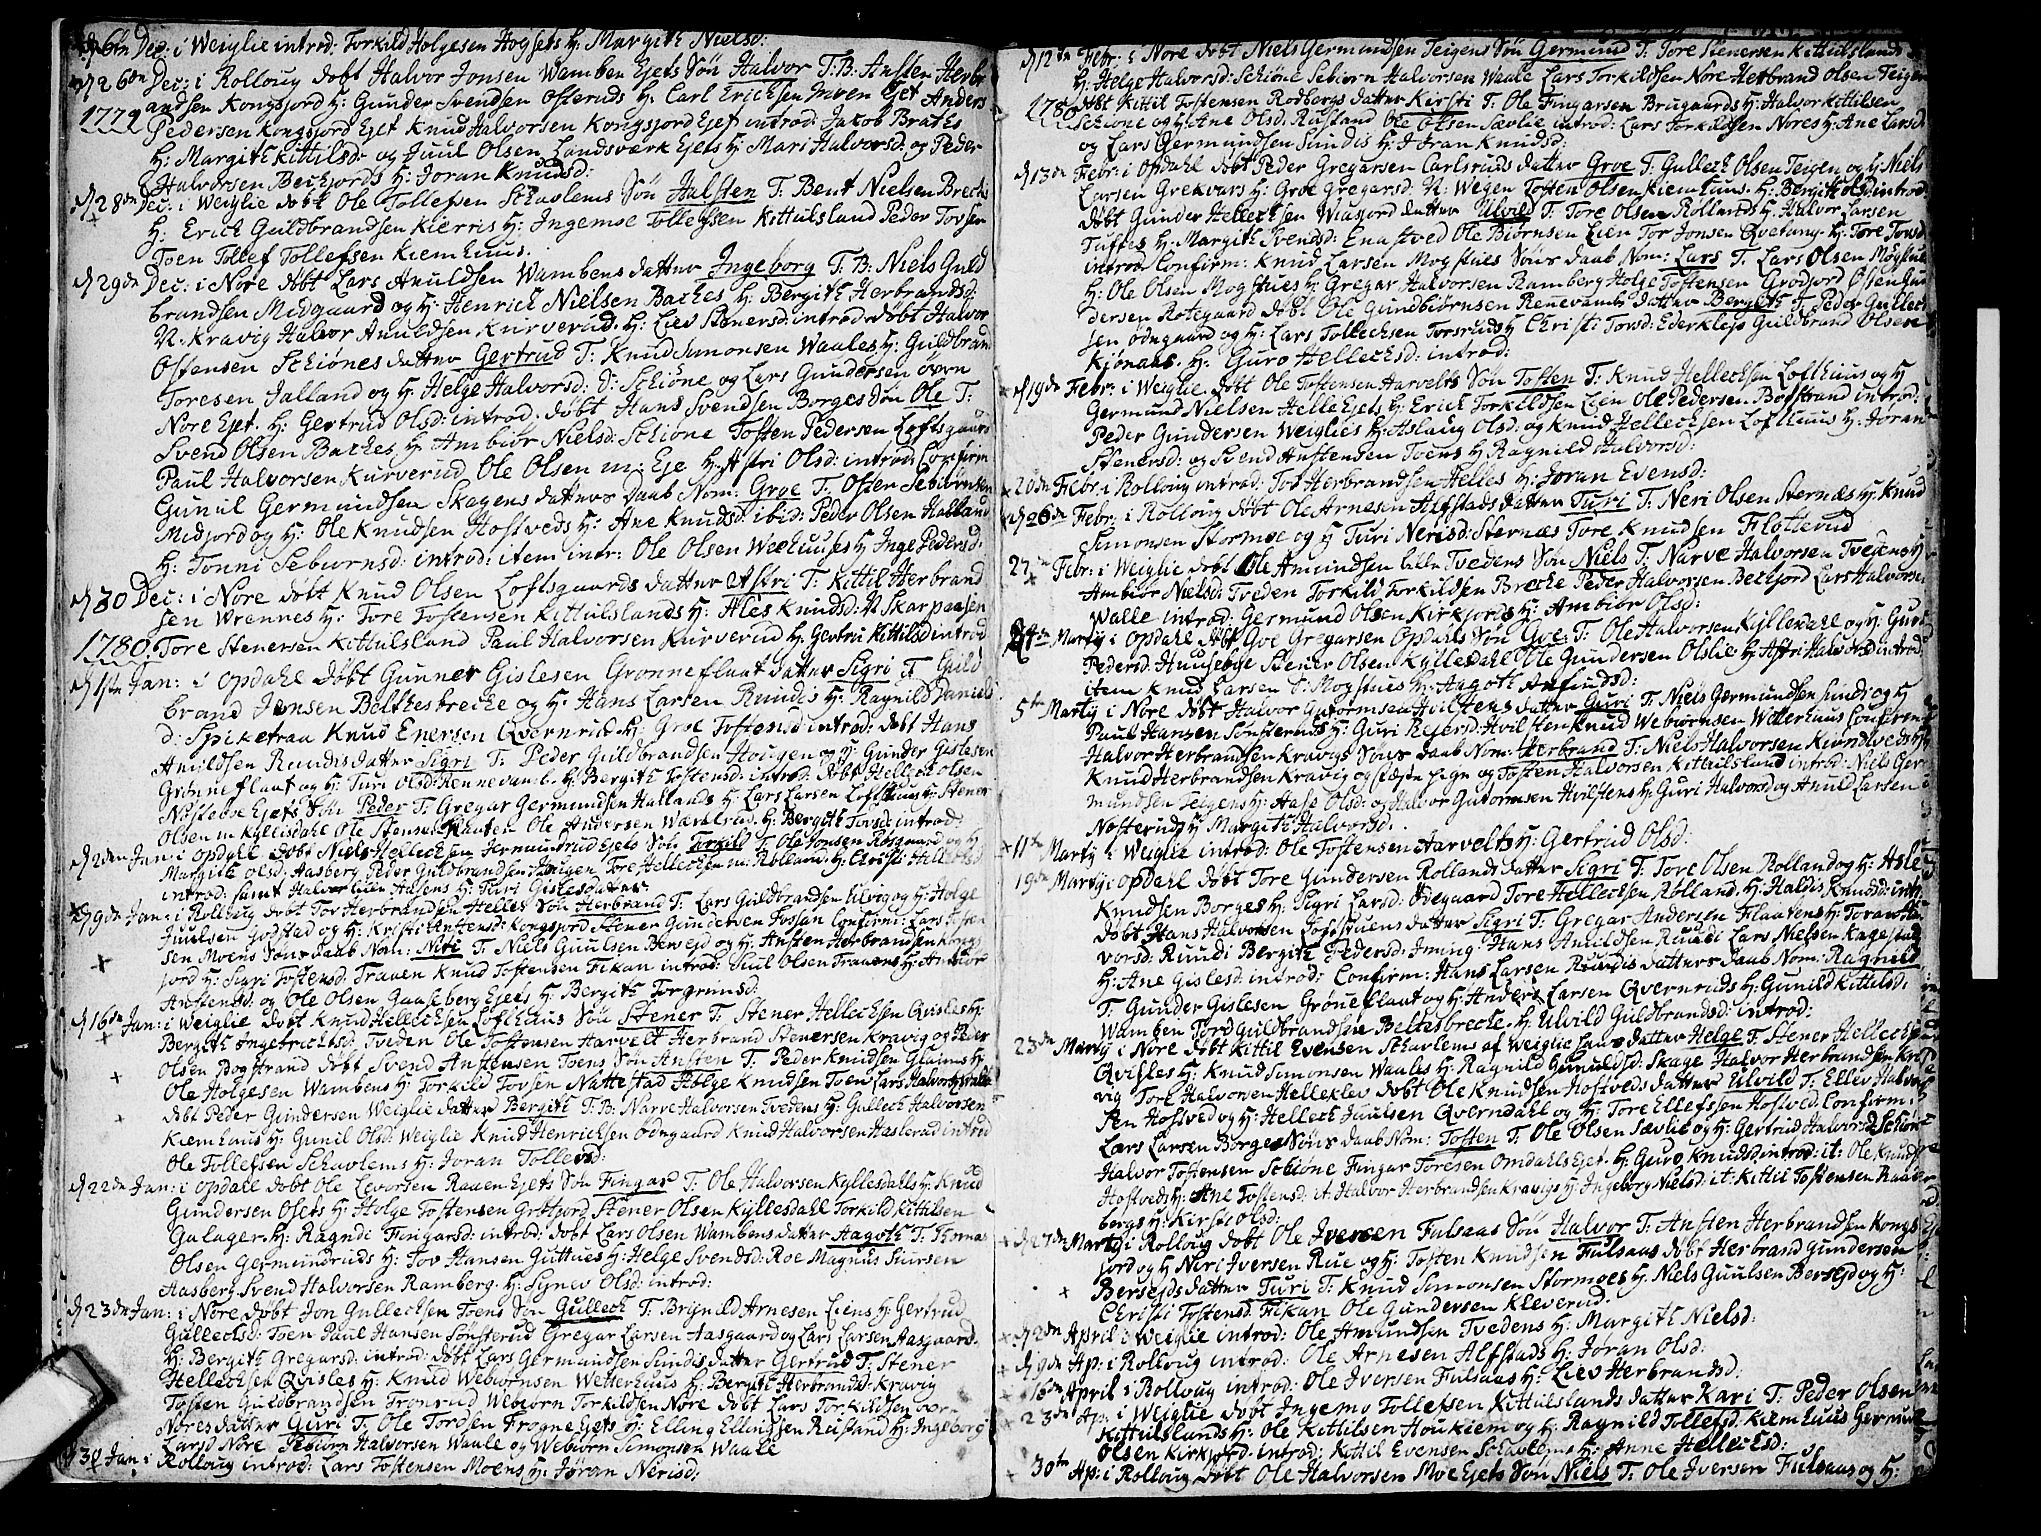 6te Dec: i Weiglie introd: Torkild Holgesen Hogsets H: Margith Nielsd:
d 26de Dec: i Rolloug døbt Halvor Jonsen Wamben Ejets Søn Halvor T. B. Ansten Herbr
1779 andsen Kongsjord H: Gunder Svendsen Osteruds H: Carl Ericksen Ejet Anders
Pedersen Kongsjord Ejet Knud Halvorsen Kongsjord Ejet introd: Jacob Braths
H: Margith Kittilsd: og Juul Olsen Landsværk Ejets H: Mari Halvorsd: og Peder
Halvorsen Bechjords H: Joran Knudsd:
d 28de Dec: i Weiglie døbt Ole Tollefsen Schavlems Søn Halsten T. Bent Nielsen Breche
H: Erich Guldbrandsen Kierris H: Ingemoe Tollefsen Kittulsland Peder Tovsen
Toen Tollef Tollefsen Kiemhuus.
d 29de Dec: i Nore døbt Lars Anuldsen Wambens datter Ingeborg T. B: Niels Guld
brandsen Midgaard og H: Henrich Nielsen Baches H: Bergith Herbrandsd:
N. Kravig Halvor Anuldsen Kurverud. H: Liev Stenersd: introd: døbt Halvor
Ostensen Schiønes datter Gertrud T: Knud Simonsen Waales H: Guldbrand
Toresen Jalland og H: Helge Halvorsd: S: Schiøne og Lars Gundersen øvrn
Nore Ejet. H: Gertrud Olsd: introd. døbt Hans Svendsen Borges Søn Ole T:
Svend Olsen Baches H: Ambiør Nielsd: Schione Tosten Pedersen Loftsgaard
Paul Halvorsen Kurverud Ole Olsen m. Eje H: Astri Olsd: introd: Confirm
Gunil Germundsen Skagens datters Daab Nom: Groe T: Osten Sebiørnsen
Midjord og H: Ole Knudsen Hofsveds H: Ane Knudsd: ibid: Peder Olsen Halland
H: Tonni Sebiørnsd: introd: item intr: Ole Olsen Weehuuses H: Inge Pedersd:
d 30 Dec: i Nore døbt Knud Olsen Loftsgaards datter Astri T: Kittil Herbrand
sen Wrennes H: Tore Tostensen Kittulslands H: Ales Knudsd: N Skarpaasen
1780. Tore Stenersen Kittulsland Paul Halvorsen Kurverud H: Gertru Kittilsd introd
d 1te Jan: i Opdahl døbt Gunner Gislesen Grønneflaat datter Sigri T. Guld
brand Jonsen Belthesbreche og H: Hans Larsen Ruudis H: Ragnild Daniels
d: Spiketraa Knud Enersen Qvernrud. H: Groe Tostensd introd: døbt Hans
Anuldsen Ruudis datter Sigri T: Peder Guldbrandsen Hougen og H: Gunder Gislesen
Grønneflaat og H: Turi Olsd: Rennevand. H: Bergith Tostensd: introd: døbt Hellech Olsen
Nøstebøe Ejets Søn Peder T: Gregar Germundsen Hallands H: Lars Larsen Lofthuus H: Stener
Olsen m Kyllisdahl Ole Stensen Flaaten Ole Andersen Wærelrud. H: Bergith Tovsd: introd:
d 2den Jan: i Opdahl døbt Niels Hellechsen Jermuntrud Ejets Søn Torkild T: Ole Jonsen Rotegaard og H:
Margith Olsd: Aasberg Peder Guldbrandsen Hougen Tore Hellechsen m: Rolland. H: Christi Hellechsd
introd: samt Halvor Lille Aasens H: Turi Gislesdatter
d 9de Jan: i Rolloug døbt Tov Herbrandsen Helles Søn Herbrand T: Lars Guldbrandsen Ulvig og H: Holge
Juulsen Godstad og H: Kristi Anstensd: Kongsjord Stener Gundersen Fossan Confirm: Lars Tosten
sen Moens Søns Daab Nom: Niri T. Niels Guulsen Bersejd og H: Ansten Herbrandsen Kongs
jord H: Sigri Tostensd: Traaen Knud Tostensen Fikan introd: Juul Olsen Traaens H: Ambiør
Anstensd: og Ole Olsen Gaaseberg Ejets H: Bergith Torgrimsd:
d 16de Jan: i Weiglie døbt Knud Hellechsen Lofthuus Søn Stener T: Stener Hellechsen Qvisles H:
Bergith Ingebrichtsd: Tveden Ole Tostensen Harvelt Herbrand Stenersen Kravig og Peder
Olsen Bogstrand døbt Svend Anstensen Toens Søn Ansten T: Peder Knudsen Glaims H:
Ole Holgesen Wambens H: Torkild Tovsen Nattestad Holge Knudsen Toen Lars Halvorsen Walle
døbt Peder Gundersen Weiglie datter Bergith T: B: Narve Halvorsen Tvedens H: Gullech Halvorsen
Kiemhuus H: Gunil Olsd: Weiglie Knud Henrichsen Odegaard Knud Halvorsen Haslerud introd
Ole Tollefsen Schavlems H: Joran Tollefsd:
d 22de Jan: i Opdahl døbt Ole Levorsen Raaen Ejets Søn Fingar T: Ole Halvorsen Kyllesdalls H: Knud
Gundersen Øsets H: Holge Tostensen Grøtjord Stener Olsen Kyllesdahl Torkild Kittilsen
Galager. H: Ragndi Fingarsd: introd: døbt Lars Olsen Wambens datter Aagoth T: Thomas
Olsen Germundruds H: Tov Hansen Guttues H: Helge Svendsd: Roe Magnus Siursen
Aasberg Svend Halvorsen Ramberg. H: Synev Olsd: introd:
d 23de Jan: i Nore døbt Jon Gullechsen Toens Søn Gullech T: Brynild Arnesen Liens H: Gertrud
Gullechsd: Toen Paul Hansen Sønsterud Gregar Larsen Aasgaard og Lars Larsen Aasgaard.
H: Bergith Gregarsd: introd: døbt Lars Germundsen Sundis datter Gertrud T: Stener
Hellechsen Qvisles H: Knud Webiørnsen Wetterhuus H: Bergith Herbrandsd: Kravig
Tosten Guldbrandsen Fronrud Webiørn Torkildsen Nore døbt Lars Torkildsen øvr
Nores datter Guri T. Ole Tordsen Frogne Ejets H: Elling Ellingsen Reistand H: Ingeborg
Larsd Nore Sebiørn Halvorsen Waale og Webiørn Simonsen Waale
d 30 Jan: i Rolloug introd: Lars Tostensen Moens H: Jøran Nerisd:
d 12te Febr: i Nore døbt Niels Germundsen Teigens Søn Germund T. Tore Stenersen Kittulslands
H: Helge Halvorsd: Schione Sebiørn Halvorsen Waale Lars Torkildsen Nore Herbrand Olsen Teigen
1780 døbt Kittil Tostensen Rodbergs datter Kirsti T: Ole Fingarsen Brugaards H: Halvor Kittilsen
Schione og H: Ane Olsd: Rustand Ole Olsen Sævlie introd: Lars Torkildsen Nores H: Ane Larsd
og Lars Germundsen Sundis H: Joran Knudsd:
d 13de Febr: i Opdahl døbt Peder Gregarsen Carlsruds datter Groe T: Gullech Olsen Teigen og H: Niels
Larsen Grekvars H: Groe Gregarsd: N: Wegen Tosten Olsen Kiemhuus. H: Bergith Olsd introd:
døbt Gunder Hellechsen Wiusjord datter Ulvild T: Tore Olsen Rollands H: Halvor Larsen
Tuftes H: Margith Svendsd: Enastved Ole Biørnsen Lien Tor Jonsen Qvetang. H: Tore Tovsd:
introd. Confirm: Knud Larsen Mogstues Søns Daab Nom: Lars T. Lars Olsen Mogstue
H: Ole Olsen Mogstues H: Gregar Halvorsen Ramberg Holge Tostensen Grodjord Østen Gun
dersen Rotegaard døbt Ole Gundbiørnsen Renevands datter Bergith T: Peder Gullech
sen Odegaard og H: Lars Tollechsen Torsruds H: Christi Tovsd: Ederklep Guldbrand Olsen
Kjønaas. H: Guro Hellechsd: introd:
d 19de Febr: i Weiglie døbt Ole Tostensen Harvelts Søn Tosten T: Knud Hellechsen Lofthuus og H
Germund Nielsen Helle Ejets H: Erich Torkildsen Lien Ole Pedersen Bogstrand introd:
Peder Gundersen Weiglies H: Aslaug Olsd: og Knud Hellechsen Lofthuus H: Joran
Stenersd: og Svend Anstensen Toens H: Ragnild Halvorsd:
20de Febr: i Rolloug introd: Tov Herbrandsen Helles H: Joran Evensd:
d 26de Febr: i Rolloug døbt Ole Arnesen Alfstads datter Turi T: Neri Olsen Sternæs H: Knud
Simonsen Stormoe og H Turi Nerisd: Sternæs Tore Knudsen Flotterud
27de Febr: i Weiglie døbt Ole Amundsen lille Tvedens Søn Niels T: Narve Halvorsen Tvedens H
Ambiør Nielsd: Tveden Torkild Torkildsen Breche Peder Halvorsen Bechjord Lars Halvorsen
Walle introd: Germund Olsen Kirkjords H: Ambiør Olsd:
4de Martij i Opdahl døbt Goe Gregarsen Opdahls Søn Goe T: Ole Halvorsen Kyllesdahl og H: Guru
Pedersd: Huusebye Stener Olsen Kyllesdahl Ole Gundersen Øslie H: Astri Halvorsd introd:
item Knud Larsen S: Mogstues H: Aagoth Anfindsd:
5te Martij i Nore døbt Halvor Guttormsen Hvilstens datter Guri T: Niels Germundsen Sundis og H
Paul Hansen Sønsteruds H: Guri Reiersd: Hvilsten Knud Webiørnsen Wetterhuus Confirm
Halvor Herbrandsen Kravigs Søns Daab Nom: Herbrand T: Niels Halvorsen Kiondtveds H:
Knud Herbrandsen Kravig og fæste pige og Tosten Halvorsen Kittulsland introd: Niels Ger
mundsen Teigens H: Aase Olsd: og Halvor Gutormsen Hvilstens H: Guri Halvorsd og Anuld Larsen
Nøsteruds H Margith Halvorsd:
11te Martij i Weiglie introd: Ole Tostensen Harvelts H: Gertrud Olsd:
19de Martij i Opdahl døbt Tore Gundersen Rollands datter Sigri T: Tore Olsen Rolland og H: Asle
Knudsen Borges H: Sigri Larsd: Ødegaard Tore Hellechsen Rolland. H: Haldis Knudsd: intr.
døbt Hans Halvorsen Lofsstuens datter Sigri T: Gregar Andersen Flaatens H: Toran Hal
vorsd: Ruudi Bergith Pedersd: Iming Hans Anuldsen Ruudi Lars Nielsen Kagestad
H: Ane Gislesd: introd: Confirm: Hans Larsen Ruudis datters Daab Nom: Ragnild
T: Gunder Gislesen Grøneflaat og H: Anders Larsen Qvernruds H: Gunild Kittilsd:
Wamben Tord Guldbrandsen Belthesbreche. H: Ulvild Guldbrandsd: introd:
23de Martij i Nore døbt Kittil Evensen Schavlems af Weiglie datter Helge T: Stener Hellechsen
Qvisles H: Knud Simonsen Waales H: Ragnild Gunuldsd: Skage Halvor Herbrandsen Kra
vig Tore Halvorsen Helleklev døbt Ole Knudsen Hofsveds datter Ulvild T: Ellev Halvor
sen Hofsved og H: Hellech Juulsen Qverndahl og H: Tore Ellefssen Hofsved: Confirm:
Lars Larsen Borges Søns Daab Nom: Tosten T: Ole Olsen Sævlie og H: Gertrud Halvorsd Schion
Halvor Tostensen Schiøne Fingar Toresen Omdahls Ejet. H: Guro Knudsd: introd: it: Ole Knudsen
Hofsveds H: Ane Tostensd: it: Halvor Herbrandsen Kravigs H: Ingeborg Nielsd: it: Kittil Tostensen Raad
bergs H: Kirsti Olsd:
d 27de Martij i Rolloug døbt Ole Iversen Fulsaas Søn Halvor T: Ansten Herbrandsen Kongs
jord og H Neri Iversen Rue og H: Tosten Knudsen Fulsaas døbt Herbrand Gundersen
Bersejds datter Turi T: Knud Simonsen Stormoes H: Niels Guulsen Bersejd og H:
Christi Tostensd: Fikan Ole Gundersen Kleverud.
d 2de April i Weiglie introd: Ole Amundsen Tvedens H: Margith Nielsd:
d 9de Ap: i Rolloug introd: Ole Arnesen Alfstads H: Jøran Olsd:
16de April i Rolloug introd: Ole Iversen Fulsaas H: Liev Herbrandsd:
23de Ap: i Weiglie døbt Ingemo Tollefsen Kittulslands datter Kari T: Peder Olsen
Kittulslands H: Ole Kittilsen Houkiem og H: Ragnild Tollefsd: Kiemhuus Germund
Olsen Kirkjord. introd: Kittil Evensen Schavlems H: Anne Hellechsd:
30te Ap: i Rolloug døbt Ole Halvorsen Moe Ejets Søn Niels T: Ole Iversen Fulsaas og H: